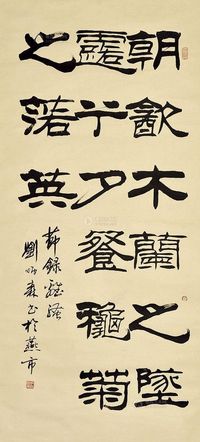 朝㱃木蘭之墜
露兮夕餐龝菊
之落英
節錄離騷
劉炳森書於燕市